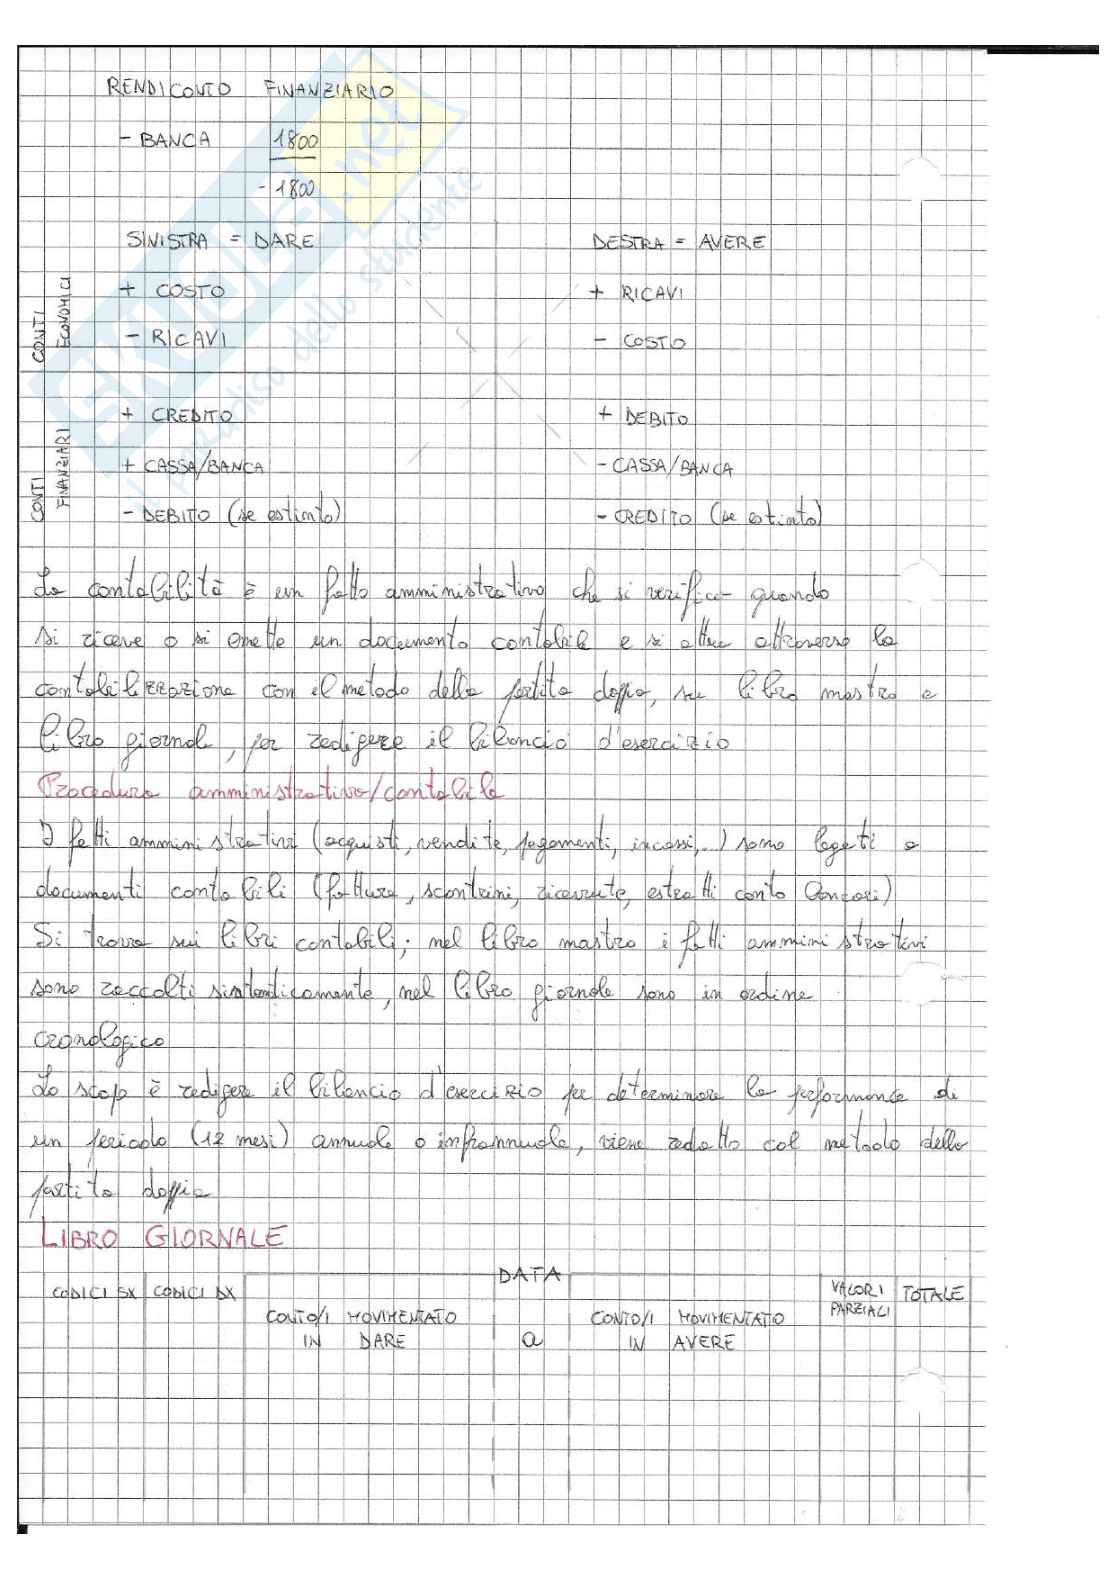 RENDICONTO FINANZIARIO
- BANCA 1800
- 1800
SINISTRA = DARE DESTRA = AVERE
CONTI ECONOMICI
+ COSTO + RICAVI
- RICAVI - COSTO
CONTI FINANZIARI
+ CREDITO + DEBITO
+ CASSA/BANCA - CASSA/BANCA
- DEBITO (se estinto) - CREDITO (se estinto)
La contabilità è un fatto amministrativo che si verifica quando
si riceve o si emette un documento contabile e si attua attraverso la
contabilizzazione con il metodo della partita doppia, su libro mastro e
libro giornale, per redigere il bilancio d'esercizio
Procedura amministrativa/contabile
I fatti amministrativi (acquisti, vendite, pagamenti, incassi,..) sono legati a
documenti contabili (fatture, scontrini, ricevute, estratti conto bancari)
Si trova sui libri contabili; nel libro mastro i fatti amministrativi
sono raccolti sistematicamente, nel libro giornale sono in ordine
cronologico
Lo scopo è redigere il bilancio d'esercizio per determinare la performance di
un periodo (12 mesi) annuale o infrannuale, viene redatto col metodo della
partita doppia
LIBRO GIORNALE
DATA
CODICI SX CODICI DX VALORI PARZIALI TOTALE
CONTO/I MOVIMENTATO CONTO/I MOVIMENTATO
IN DARE a IN AVERE
SKUOLA.net
il paradiso dello studente